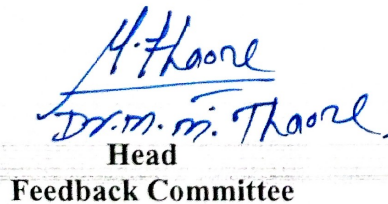 M. Thaore
Dr. M. M. Thaore
Head
Feedback Committee